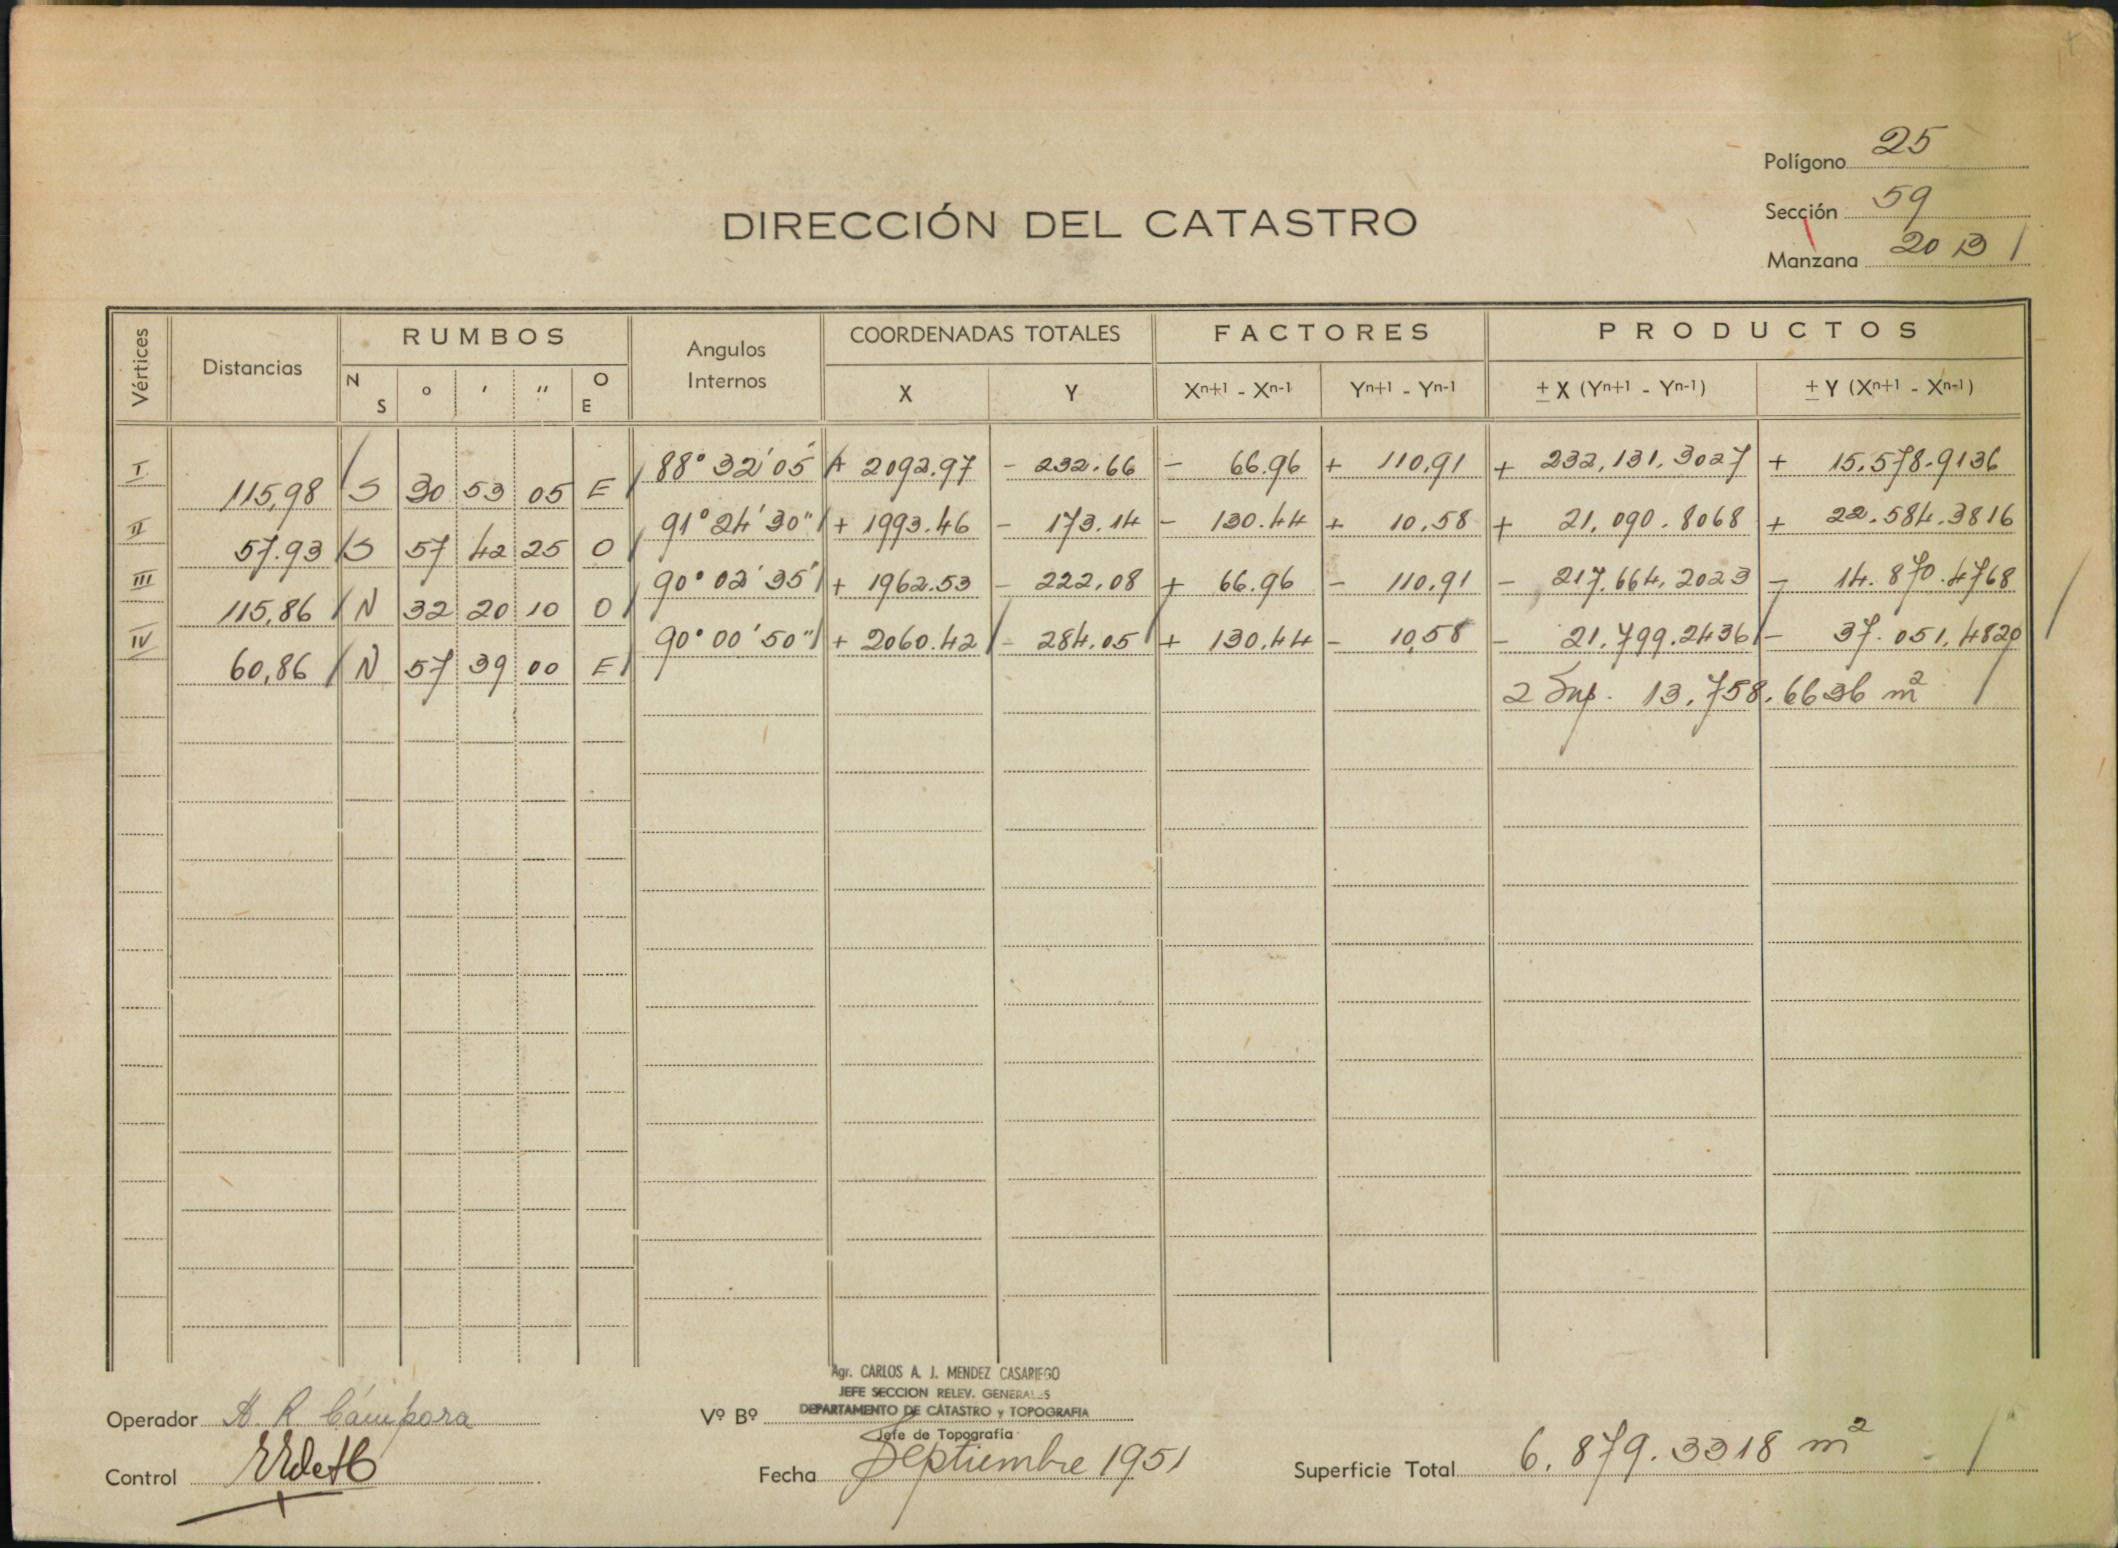 Polígono 25
Sección 59
Manzana 20 B
DIRECCIÓN DEL CATASTRO
Vértices Distancias RUMBOS Angulos Internos COORDENADAS TOTALES FACTORES PRODUCTOS
N S ° ' " O E X Y Xn+1 - Xn-1 Yn+1 - Yn-1 ± X (Yn+1 - Yn-1) ± Y (Xn+1 - Xn-1)
I 88° 32' 05" + 2092.97 - 232.66 - 66.96 + 110,91 + 232,131.3027 + 15.578.9136
115,98 S 30 53 05 E
II 91° 24' 30" + 1993.46 - 173.14 - 130.44 + 10.58 + 21.090.8068 + 22.584.3816
57.93 S 57 42 25 O
III 90° 02' 35" + 1962.53 - 222,08 + 66.96 - 110,91 - 217.664,2023 - 14.870.4768
115,86 N 32 20 10 O
IV 90° 00' 50" + 2060.42 - 284.05 + 130.44 - 10,58 - 21.799.2436 - 37.051,4820
60,86 N 57 39 00 E
2 Sup. 13.758.6636 m²
Agr. CARLOS A. J. MENDEZ CASARIEGO
JEFE SECCION RELEV. GENERALES
DEPARTAMENTO DE CATASTRO y TOPOGRAFIA
Operador A. R. Cámpora Vº Bº
Jefe de Topografía
Control Fecha Septiembre 1951 Superficie Total 6.879.3318 m²